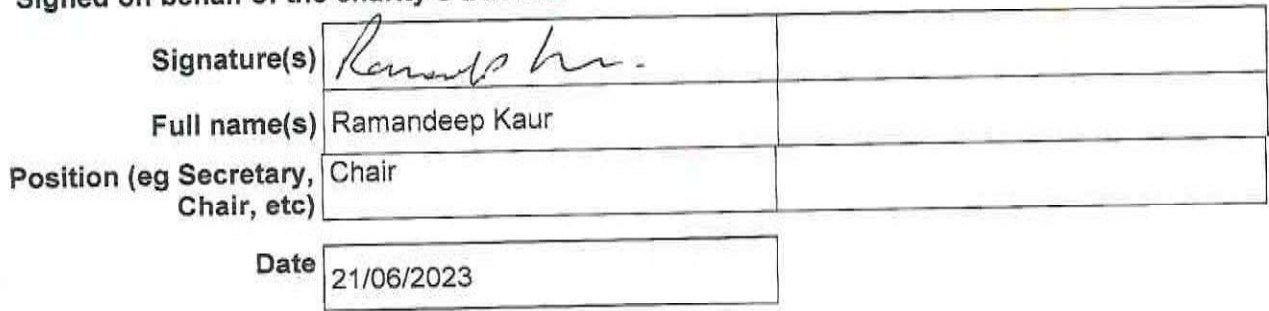 Signed on behalf of the charity's
Signature(s)
Full name(s) Ramandeep Kaur
Position (eg Secretary, Chair
Chair, etc)
Date 21/06/2023